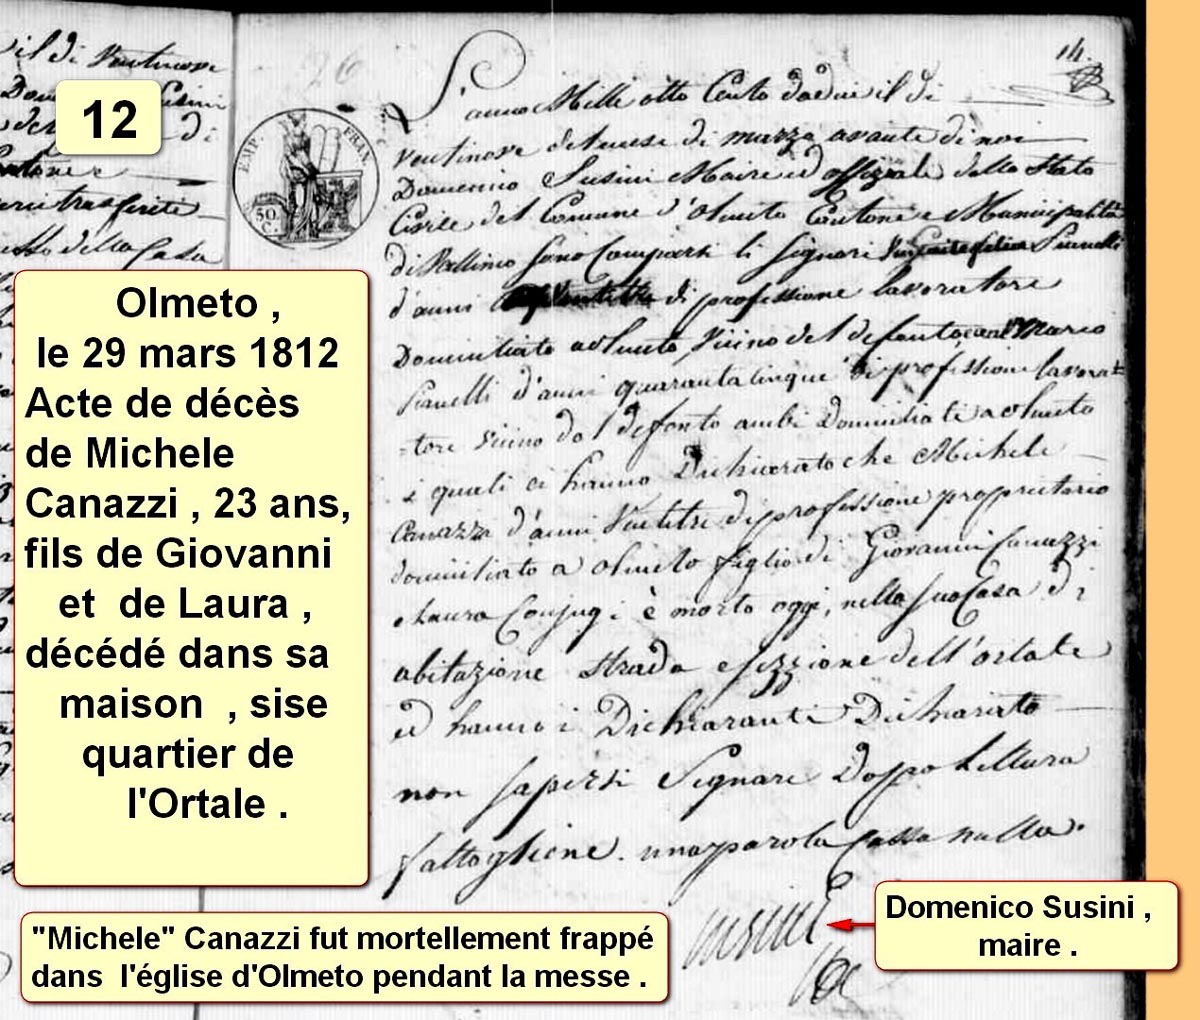 12
Olmeto ,
le 29 mars 1812
Acte de décès
de Michele
Canazzi , 23 ans,
fils de Giovanni
et de Laura ,
décédé dans sa
maison , sise
quartier de
l'Ortale .
"Michele" Canazzi fut mortellement frappé
dans l'église d'Olmeto pendant la messe .
Domenico Susini ,
maire .
14.
EMP. FRAN.
50.
C.
L'anno Mille otto Cento dodici il di
ventinove del mese di marzo avante di noi
Domenico Susini Maire ed offiziale dello Stato
Civile del Comune d'Olmeto Cantone e Municipalità
di Vallinco sono Comparsi li Signori
d'anni di professione lavoratore
Domiciliato a Olmeto Vicino del defonto Marco
Pianelli d'anni quaranta cinque di professione lavora=
=tore Vicino del defonto ambi Domiciliati a Olmeto
i quali ci hanno Dichiarato che Michele
Canazzi d'anni Ventitre di professione proprietario
domiciliato a Olmeto figlio di Giovanni Canazzi
e Laura Conjugi è morto oggi, nella sua Casa di
abitazione Strada e sezzione dell'ortale
ed hanno i Dichiaranti Dichiarato
non sapersi Signare Doppo lettura
fattogliene. una parola Cassa nulla.
Susini